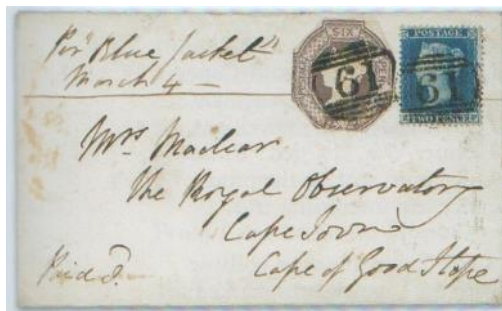 Per "Blue Jacket"
March 4 —
SIX
61
POSTAGE
61
TWO PENCE
Mrs. Maclear
The Royal Observatory
Cape Town
Cape of Good Hope
Paid